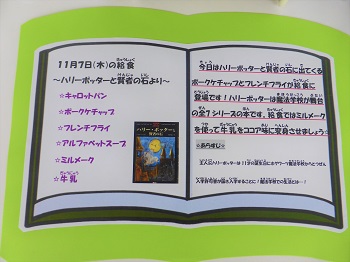 11月7日(木)の給食
～ハリーポッターと賢者の石より～
☆キャロットパン
☆ポークケチャップ
☆フレンチフライ
☆アルファベットスープ
☆ミルメーク
☆牛乳
ハリー・ポッターと
今日はハリーポッターと賢者の石に出てくる
ポークケチャップとフレンチフライが給食に
登場です！ハリーポッターは魔法学校が舞台
の全7シリーズの本です。給食ではミルメーク
を使って牛乳をココア味に変身させましょう☆
☆あらすじ☆